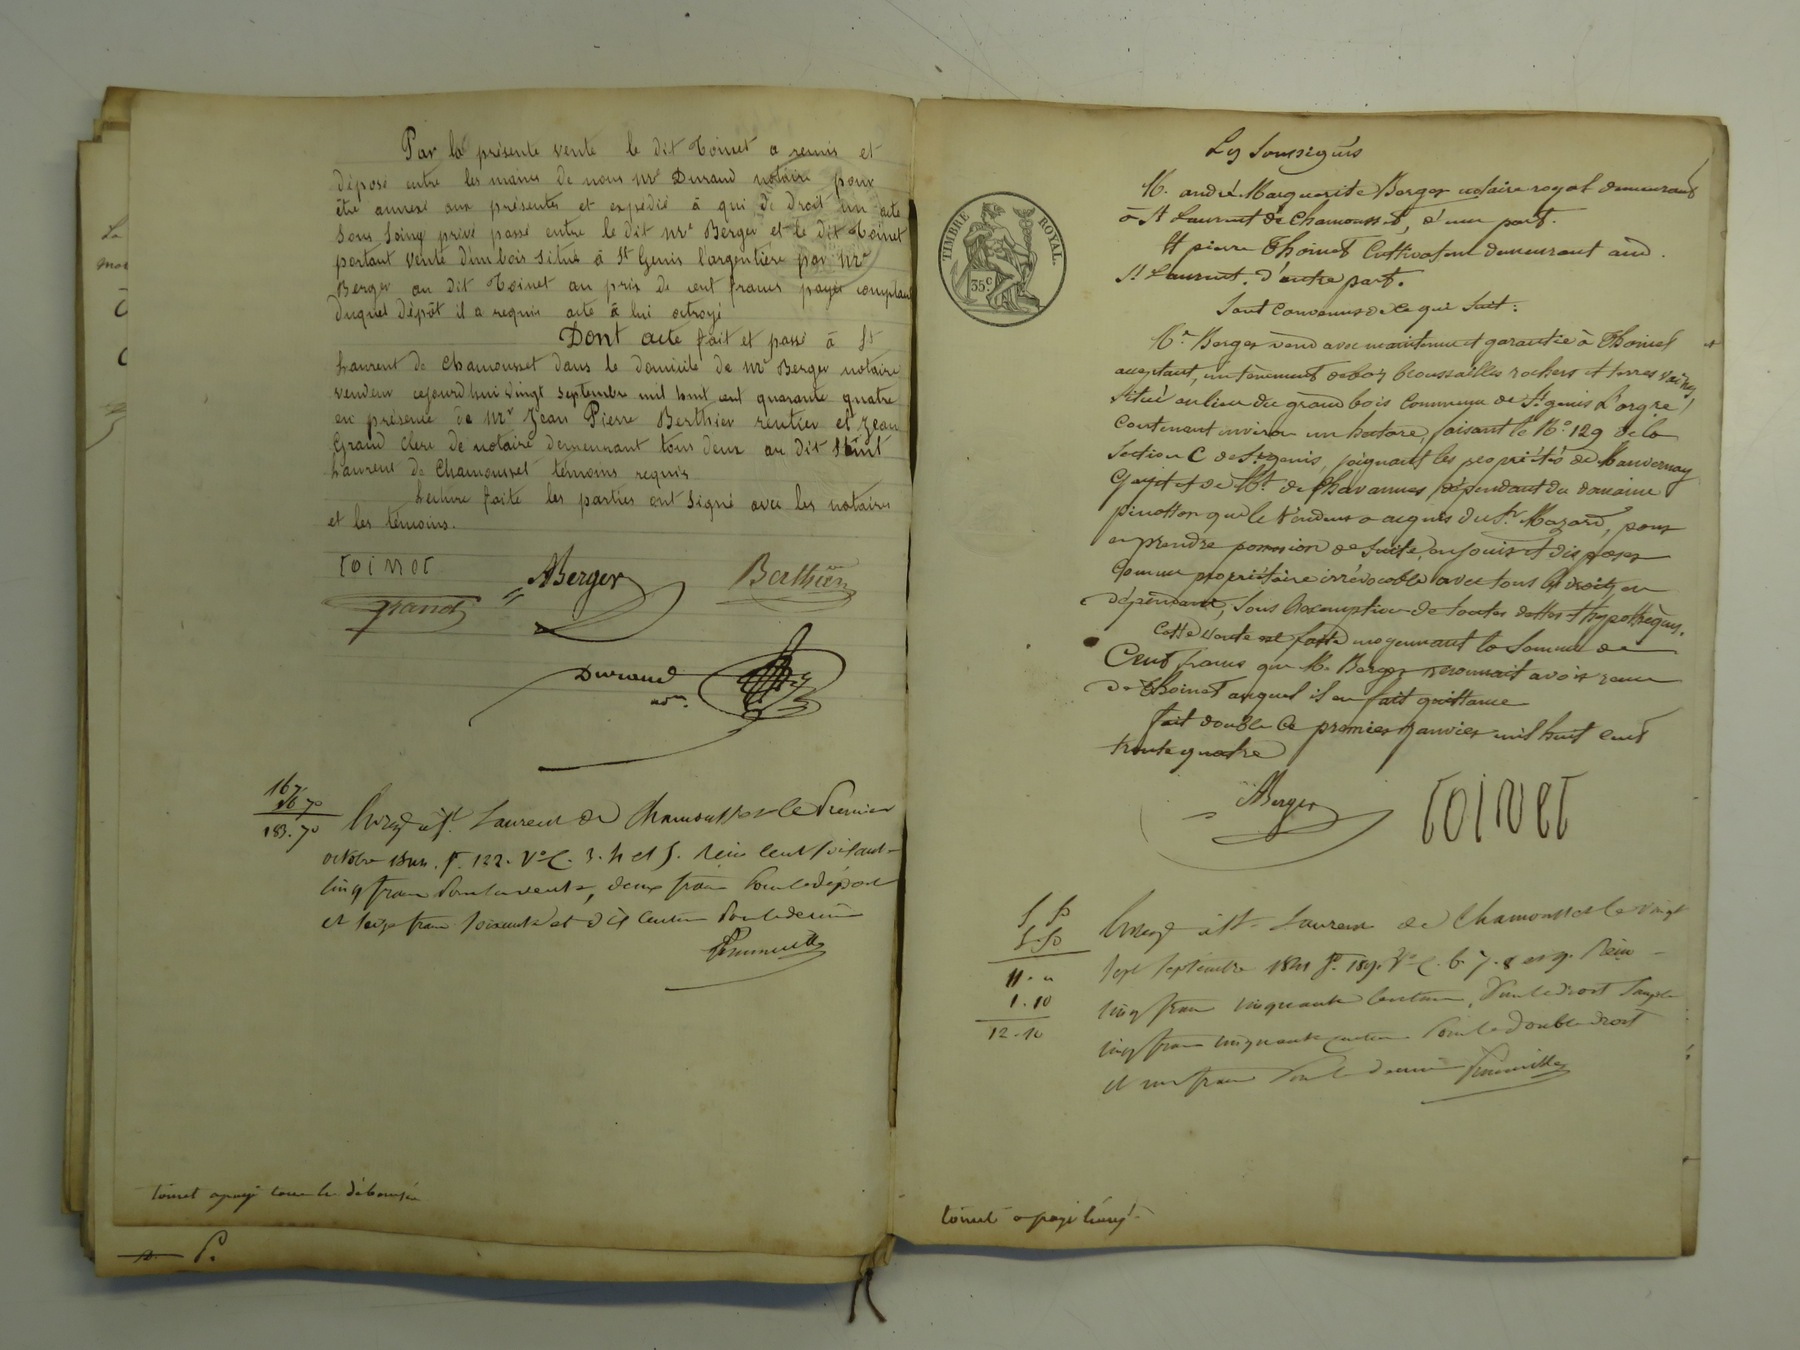 Par la présente vente le dit Toinet a remis et
déposé entre les mains de nous Mr Durand notaire pour
être annexé aux présentes et expédié à qui de droit un acte
sous seing privé passé entre le dit Mr Berger et le dit Toinet
portant vente d'un bois situé à St Genis l'argentière par Mr
Berger au dit Toinet au prix de cent francs payés comptant
duquel dépôt il a requis acte à lui octroyé
Dont acte fait et passé à St
Laurent de Chamousset dans le domicile de Mr Berger notaire
vendeur cejourd'hui vingt septembre mil huit cent quarante quatre
en présence de Mr Jean Pierre Berthier rentier et Jean
Grand clerc de notaire demeurant tous deux au dit Saint
Laurent de Chamousset témoins requis
Lecture faite les parties ont signé avec les notaires
et les témoins.
toinet
ABerger
Berthier
grand
Durand
nre
167
16 70
183.70
Enregé à St Laurent de Chamousset le Premier
octobre 1844. f. 122. Vo C. 3. 4 et 5. Reçu cent soixante
cinq francs Pour la vente, deux francs Pour le dépot
et seize francs soixante et dix centimes Pour le decime
toinet a payé tous les déboursés
P.
Les Soussignés
M. andré Marguerite Berger notaire royal demeurant
à St Laurent de Chamousset, d'une part.
Et pierre Thoinet Cultivateur demeurant aud.
St Laurent. d'autre part.
Sont convenus de ce qui suit:
Mr Berger vend avec maintenue et garantie à Thoinet
acceptant, un tènement de bois broussailles rochers et terres vaines,
situé au lieu du grand bois commune de St genis L'argre,
Contenant environ un hectare, faisant le No 129 de la
Section C de St genis, joignant les propriétés de Manvernay
et de Mr de Chavannes dépendant du domaine
pinotton que le Vendeur a acquis du Sr Mazard, pour
en prendre possession de suite, en jouir et disposer
comme propriétaire irrévocable avec tous les droits en
dépendant, sous l'exemption de toutes dettes et hypothèques.
Cette Vente est faite moyennant la somme de
Cent francs que Mr Berger reconnait avoir reçue
de Thoinet auquel il en fait quittance
fait double ce premier janvier mil huit cent
trente quatre
ABerger
toinet
TIMBRE ROYAL.
35c
5 50
5.50
11. "
1.10
12.10
Enregé à St Laurent de Chamousset le vingt
sept septembre 1844 fo 189. Vo C. 6. 7. 8 et 9. Reçu
cinq francs cinquante centimes, Pour le droit simple
cinq francs cinquante centimes Pour le double droit
et un franc Pour le decime
toinet a payé l'enregt